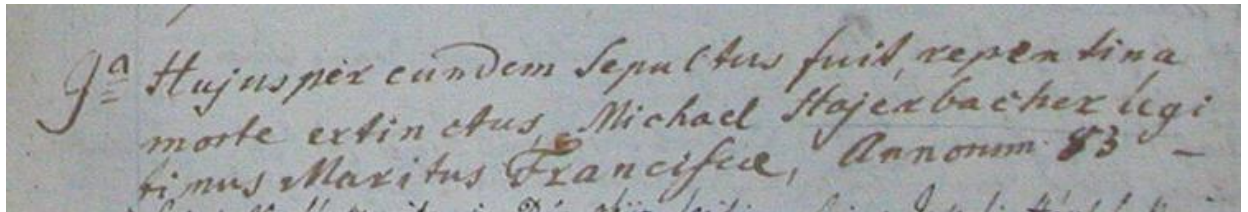 9ª Hujus per eundem Sepultus fuit, repentina
morte extinctus, Michael Hajerbacher legi
timus Maritus Franciscæ, Annorum 83 –